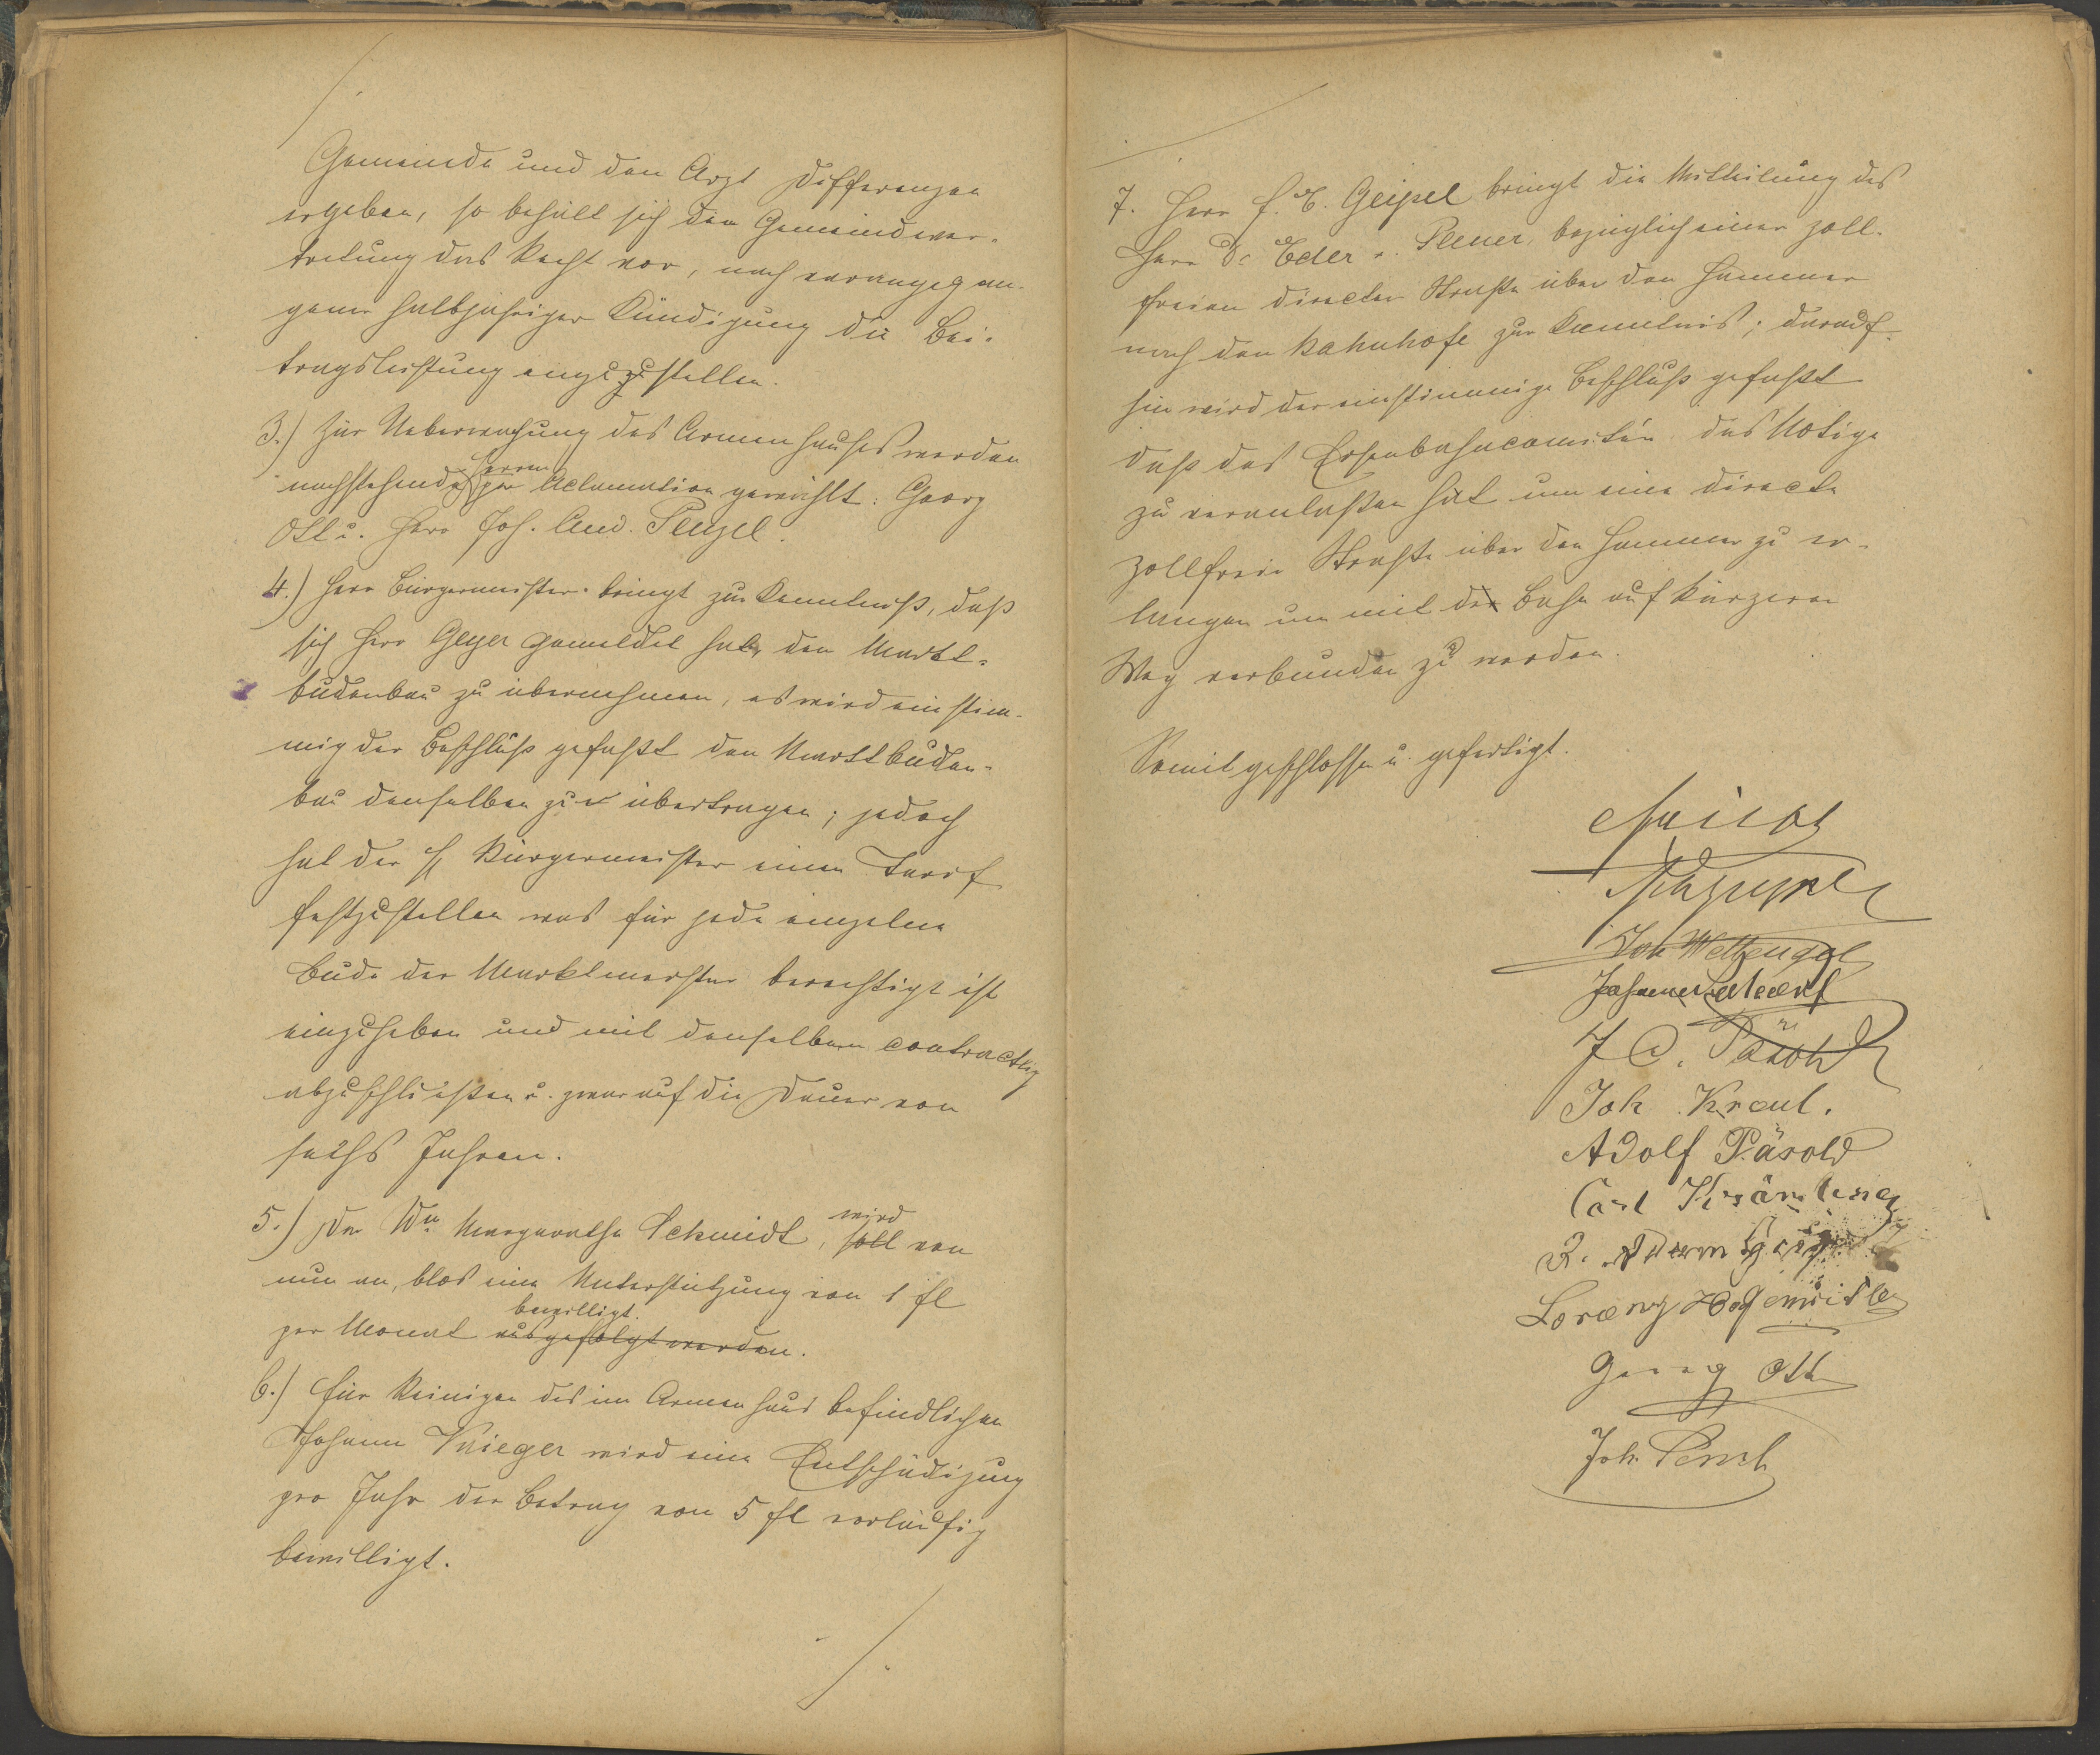 Gemeinde und den Arzt Differenzen
ergeben, so behält sich die Gemeindever-
tretung das Recht vor, nach vorangegan-
gener halbjähriger Kündigung die Bei-
tragsleistung einzustellen.
3.) Zur Ueberwachung des Armenhauses werden
nachstehende Herrn per Aclamation gewählt: Georg
Ott u. Herr Joh. And. Penzel.
4.) Herr Bürgermeister bringt zur Kenntniß, daß
sich Herr Geyer gemeldet hat, den Markt-
budenbau zu übernehmen, es wird einstim-
mig der Beschluß gefaßt den Marktbuden-
bau demselben zu übertragen; jedoch
hat der H Bürgermeister einen Tarif
festzustellen was für jede einzelne
Bude der Marktmeister berechtigt ist
einzuheben und mit demselben contractlig
abzuschließen u. zwar auf die Dauer von
sechs Jahren.
5.) Der Ww Margaretha Schmidt, soll wird von
nun an, blos eine Unterstützung von 1 fl
per Monat ausgefolgt werden. bewilligt.
6.) Für Reinigen des im Armenhaus befindlichen
Johann Krieger wird eine Entschädigung
pro Jahr der Betrag von 5 fl vorläufig
bewilligt.
7. Herr f. E. Geipel bringt die Mittheilung des
Herr Dr Eder v. Plener, bezüglich einer zoll-
freien directen Straße über den Hammer
nach den Bahnhofe zur Kenntnis; darauf-
hin wird der einstimmige Beschluß gefaßt
daß das Eisenbahncomitée das Nötige
zu veranlaßen hat um eine directe
zollfreie Straße über den Hammer zu er-
langen um mit der Bahn auf kürzeren
Weg verbunden zu werden.
Somit geschlossen u. gefertigt.
Joh Wettengel
J C. Päsold
Joh. Kraut.
Adolf Päsold
Carl Krämling
Lorenz
Georg Ott
Joh.